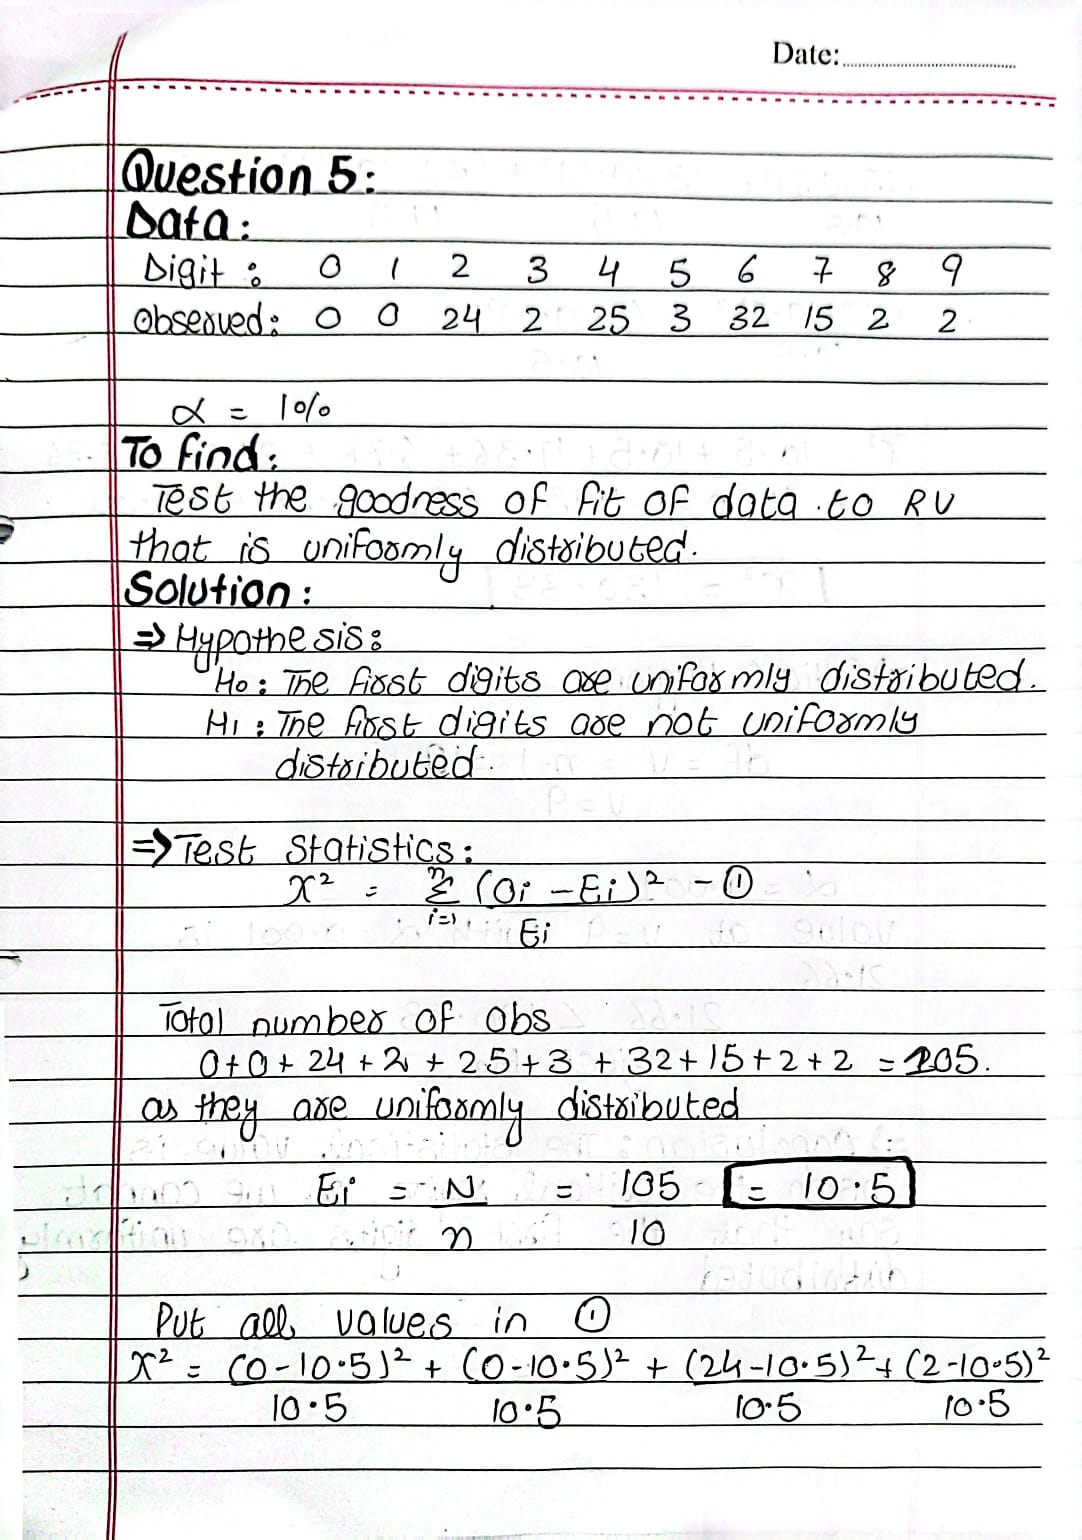 Date:
Question 5:
Data:
Digit : 0 1 2 3 4 5 6 7 8 9
Observed: 0 0 24 2 25 3 32 15 2 2
α = 1%
To find:
Test the goodness of fit of data to RV
that is uniformly distributed.
Solution:
⇒ Hypothesis:
H0 : The first digits are uniformly distributed.
H1 : The first digits are not uniformly
distributed.
⇒ Test Statistics:
χ² = n Σ i=1 (Oi - Ei)² / Ei - ①
Total number of obs
0+0+24+2+25+3+32+15+2+2 = 105.
as they are uniformly distributed
Ei = N/n = 105/10 = 10.5
Put all values in ①
χ² = (0-10.5)²/10.5 + (0-10.5)²/10.5 + (24-10.5)²/10.5 + (2-10.5)²/10.5